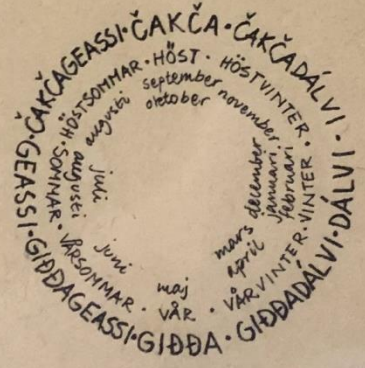 ČAKČA · ČAKČADÁLVI · DÁLVI · GIĐĐADÁLVI · GIĐĐA · GIĐĐAGEASSI · GEASSI · ČAKČAGEASSI ·
HÖST · HÖSTVINTER · VINTER · VÅRVINTER · VÅR · VÅRSOMMAR · SOMMAR · HÖSTSOMMAR ·
september
oktober
november
december
januari
februari
mars
april
maj
juni
juli
augusti
augusti